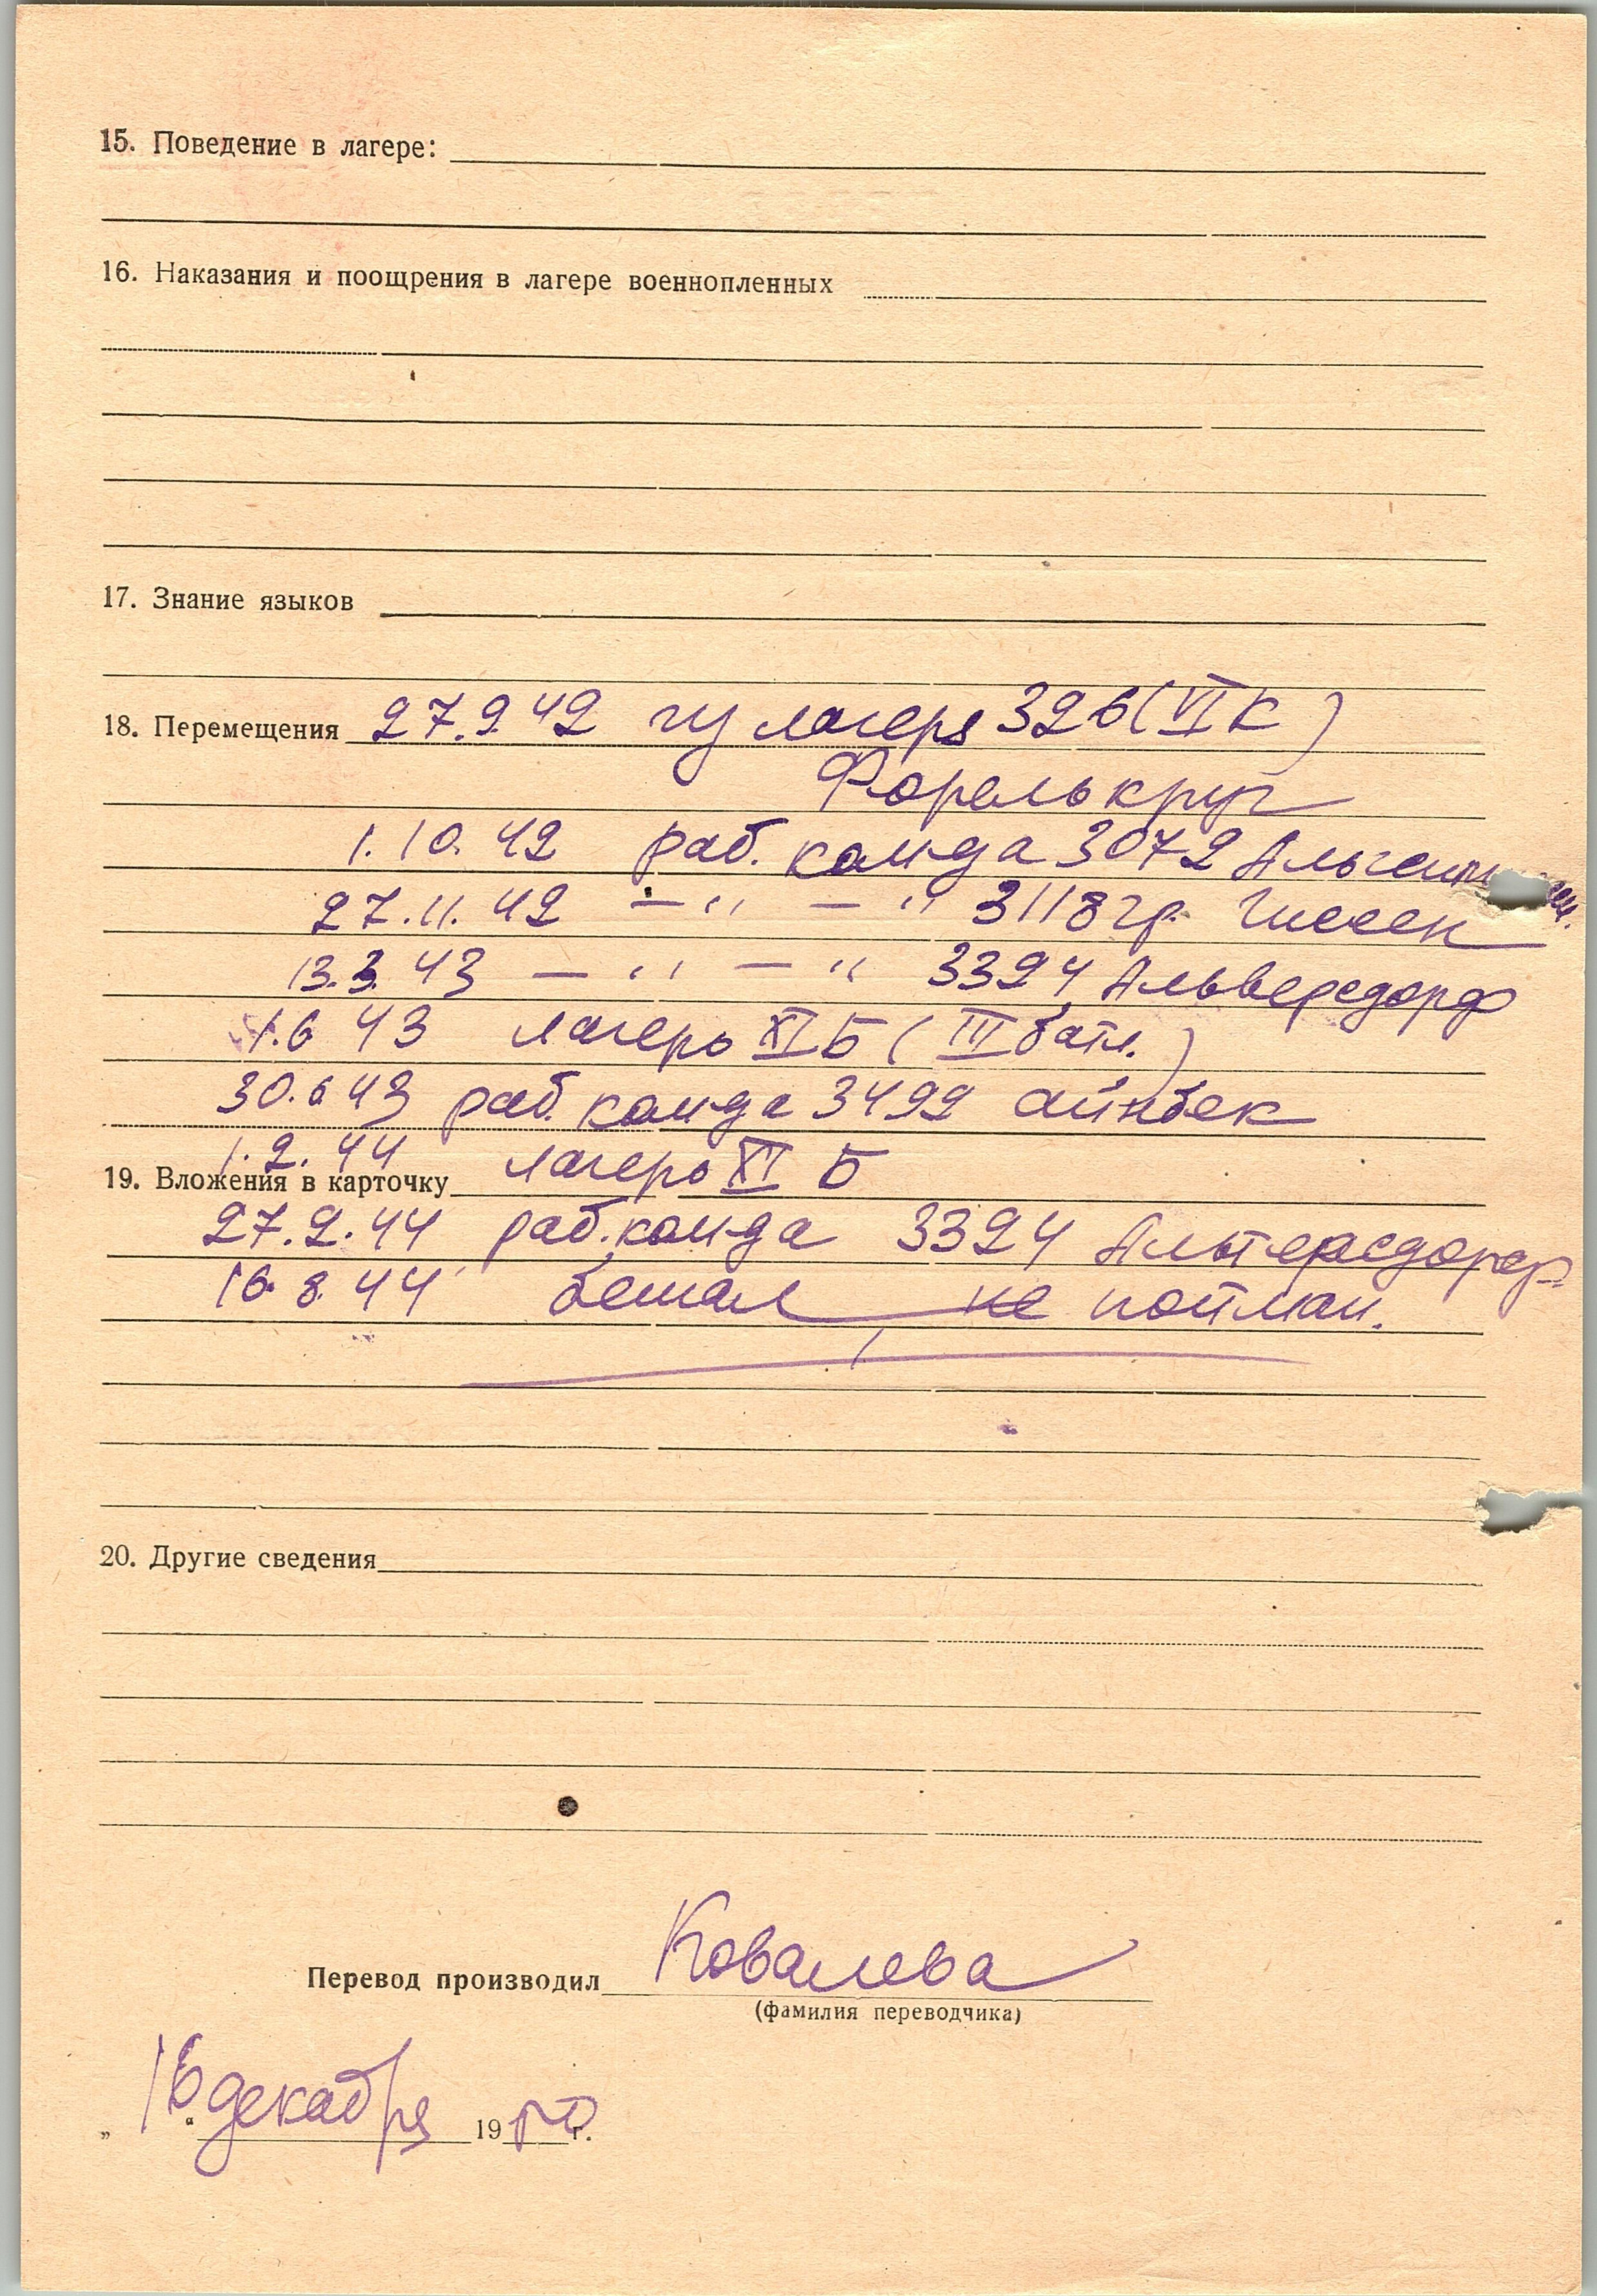 15. Поведение в лагере:
16. Наказания и поощрения в лагере военнопленных
17. Знание языков
18. Перемещения 27.9.42 из лагеря 326 (VI К)
Форелькруг
1.10.42 раб. кол-да 3072
27.11.42 — " — " 3118 гр. Гиссен
13.3.43 — " — " 3324 Альверсдорф
1.6 43 лагерь XI Б (III батл.)
30.6 43 раб. кол-да 3492 айнбек
1.2.44 лагерь XI Б
19. Вложения в карточку
27.2.44 раб. кол-да 3324 Альтерсдорф
16.8.44 бежал, не пойман.
20. Другие сведения
Перевод производил Ковалева
(фамилия переводчика)
„ 16 “ декабря 1950 г.